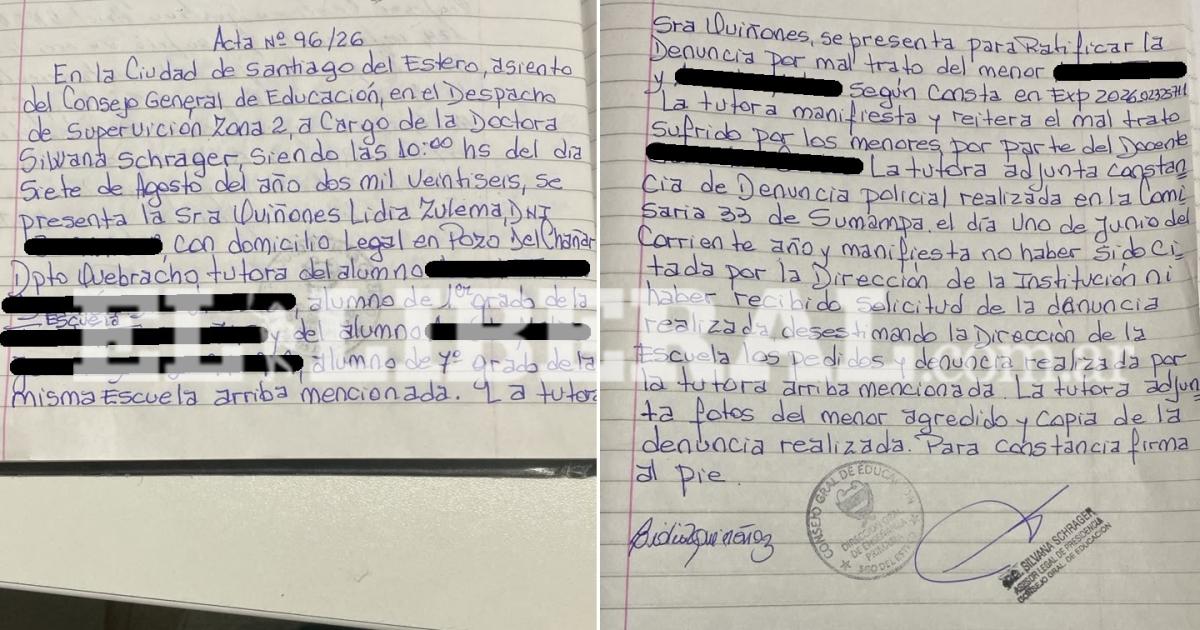 Acta Nº 96/26
En la Ciudad de Santiago del Estero, asiento
del Consejo General de Educación, en el Despacho
de Supervición Zona 2, a Cargo de la Doctora
Silvana Schrager, siendo las 10:00 hs del día
Siete de Agosto del año dos mil veintiseis, se
presenta la Sra Quiñones Lidia Zulema, DNI
con domicilio Legal en Pozo Del Chañar
Dpto Quebracho, tutora del alumno
, alumno de 1er grado de la
Escuela
y del alumno
, alumno de 7º grado de la
misma Escuela arriba mencionada. La tutora
Sra Quiñones, se presenta para Ratificar la
Denuncia por mal trato del menor
y Según Consta en Exp
La tutora manifiesta y reitera el mal trato
sufrido por los menores por parte del Docente
La tutora adjunta constan
cia de Denuncia policial realizada en la Comi
saria 33 de Sumampa, el día uno de Junio del
Corriente año y manifiesta no haber sido ci-
tada por la Dirección de la Institución ni
haber recibido solicitud de la denuncia
realizada, desestimando la Dirección de la
Escuela los pedidos y denuncia realizada por
la tutora arriba mencionada. La tutora adjun
ta fotos del menor agredido y copia de la
denuncia realizada. Para constancia firma
al pie.
EL LIBERAL
CONSEJO GRAL DE EDUCACION
DIRECCION GRAL
DE ENSEÑANZA
PRIMARIA
SGO DEL ESTERO
SILVANA SCHRAGER
ASESOR LEGAL DE PRESIDENCIA
CONSEJO GRAL. DE EDUCACIÓN